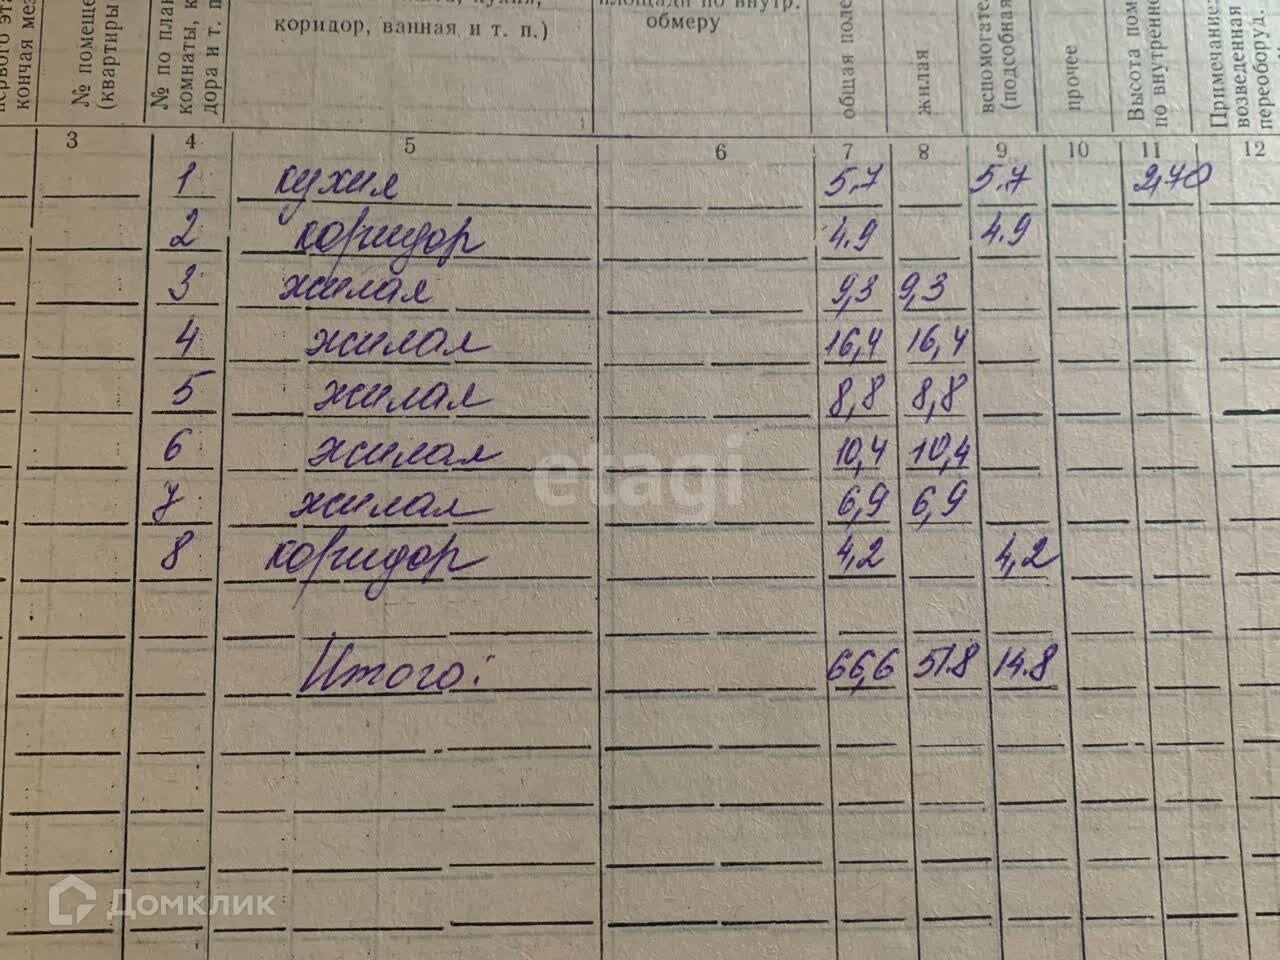 первого эта
кончая мез
№ помеще
(квартиры
№ по план
комнаты, к
дора и т. п
коридор, ванная и т. п.)
площади по внутр.
обмеру
общая поле
жилая
вспомогател
(подсобная
прочее
Высота пом
по внутренн
Примечание:
возведенная
переоборуд.
3 4 5 6 7 8 9 10 11 12
1 кухня 5.7 5.7 2,70
2 коридор 4.9 4.9
3 жилая 9,3 9,3
4 жилая 16,4 16,4
5 жилая 8,8 8,8
6 жилая 10,4 10,4
7 жилая 6,9 6,9
8 коридор 4,2 4,2
Итого: 66,6 51.8 14.8
etagi
Домклик